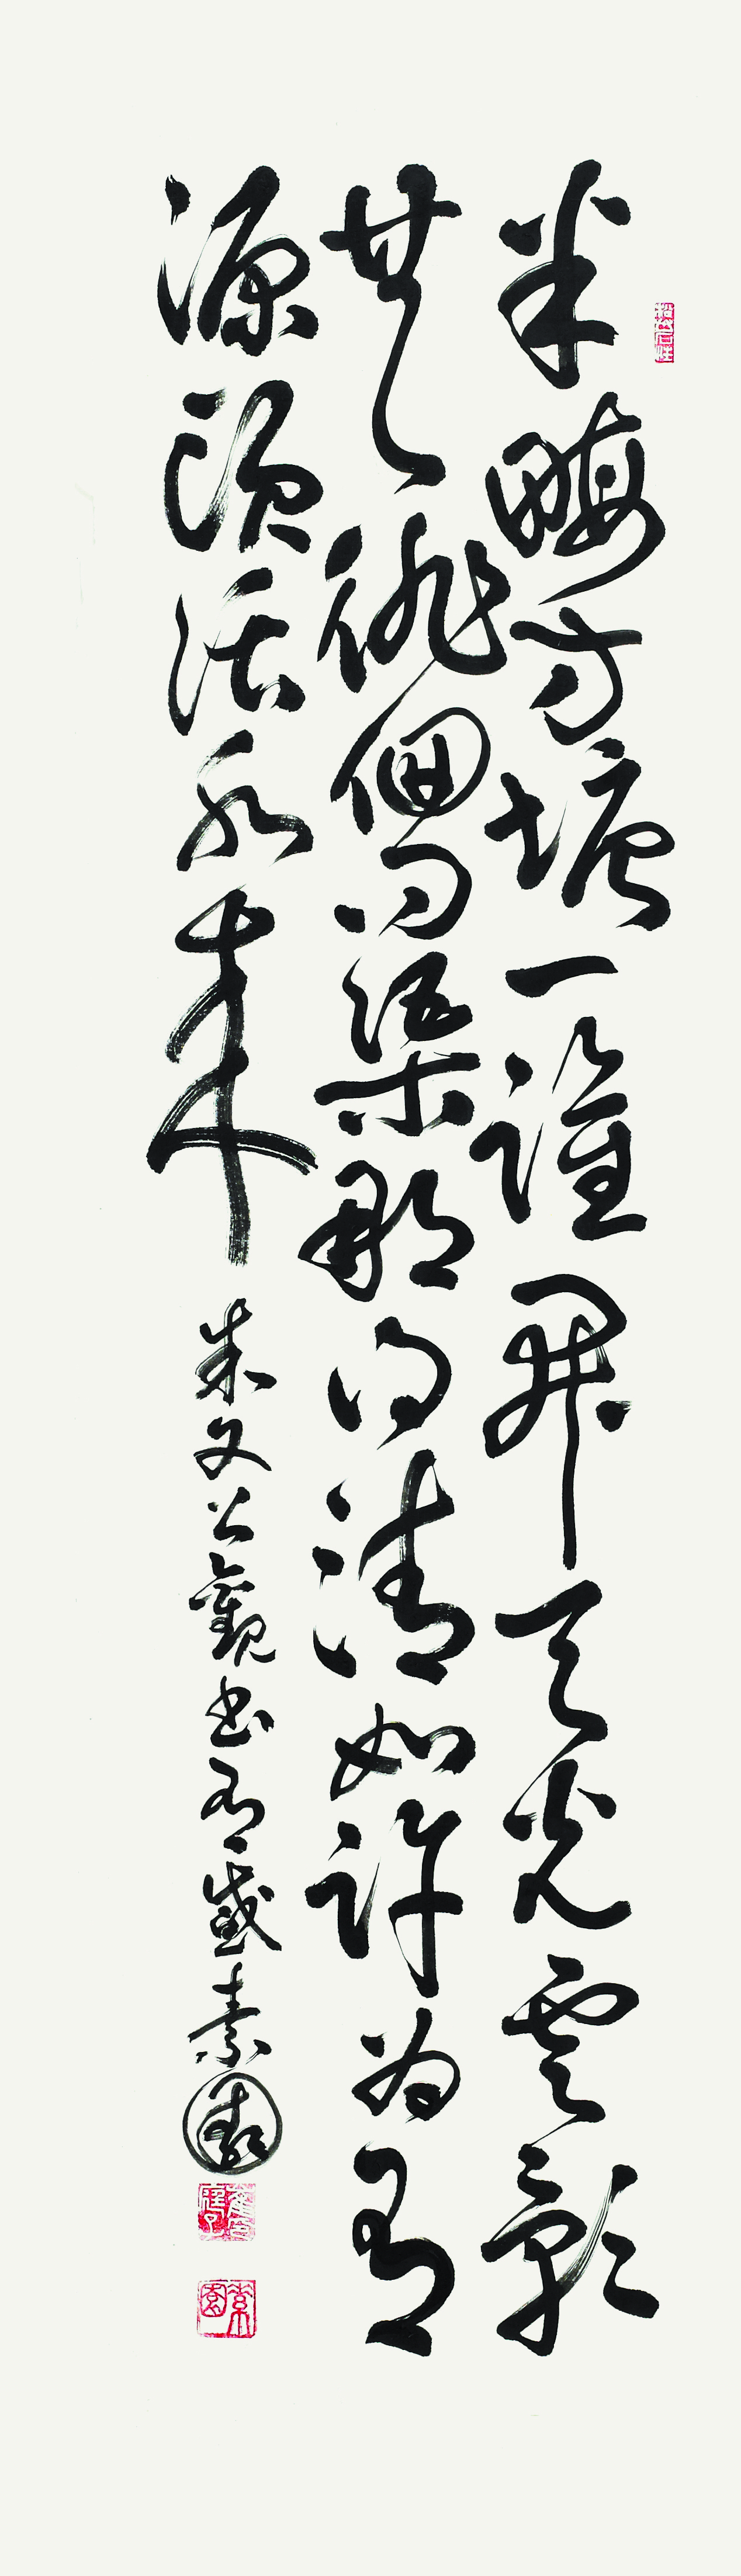 半畮方塘一鑑開天光雲影
共徘徊問渠那得清如許為有
源頭活水來 朱文公觀書有感 素園
素園